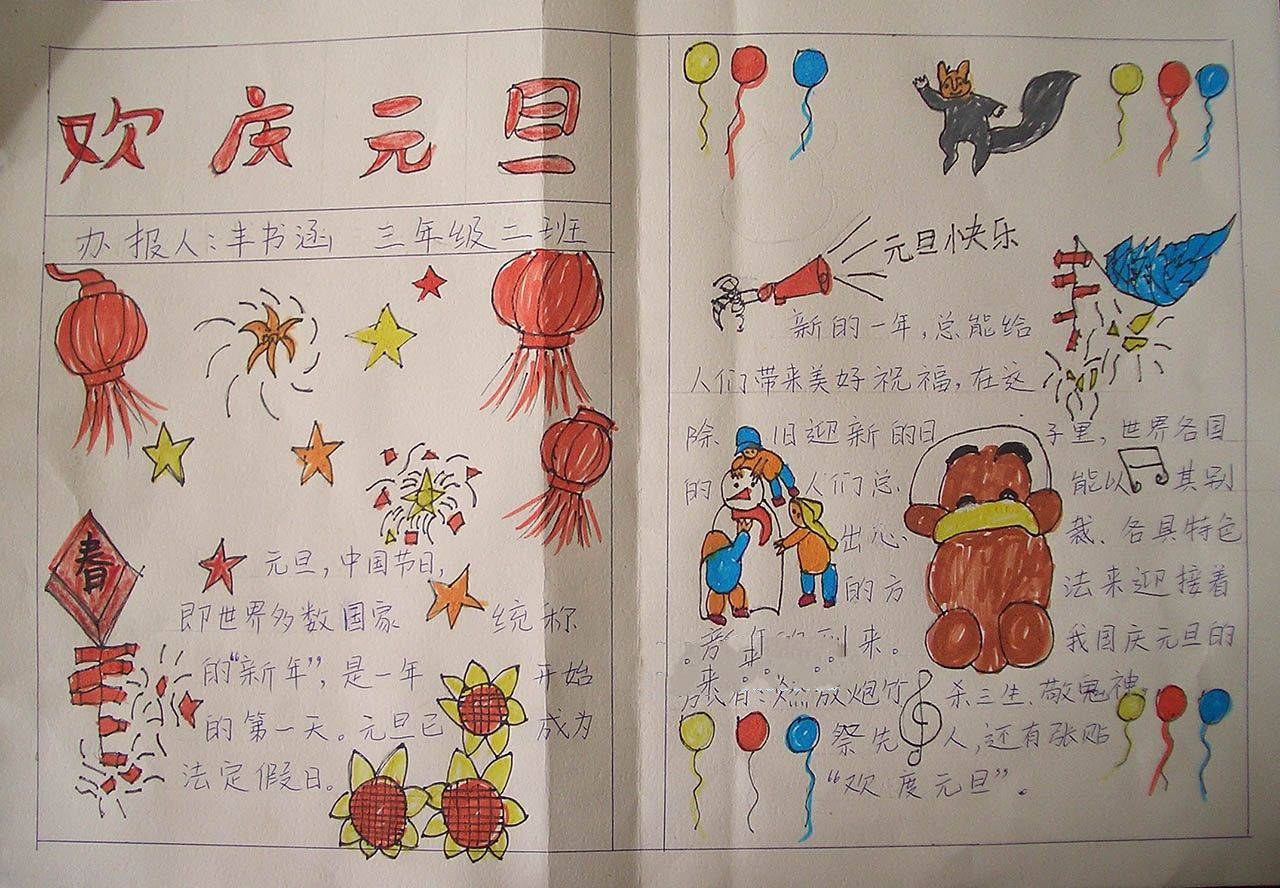 欢庆元旦
办报人:丰书涵 三年级二班
春
元旦,中国节日,
即世界多数国家 统称
的“新年”,是一年 开始
的第一天。元旦已 成为
法定假日。
元旦快乐
新的一年,总能给
人们带来美好祝福,在这
除 旧迎新的日 子里,世界各国
的 人们总 能以 其别
出心 裁、各具特色
的方 法来迎接着
来。 我国庆元旦的
放炮竹 杀三生、敬鬼神、
祭先 人,还有张贴
“欢度元旦”。